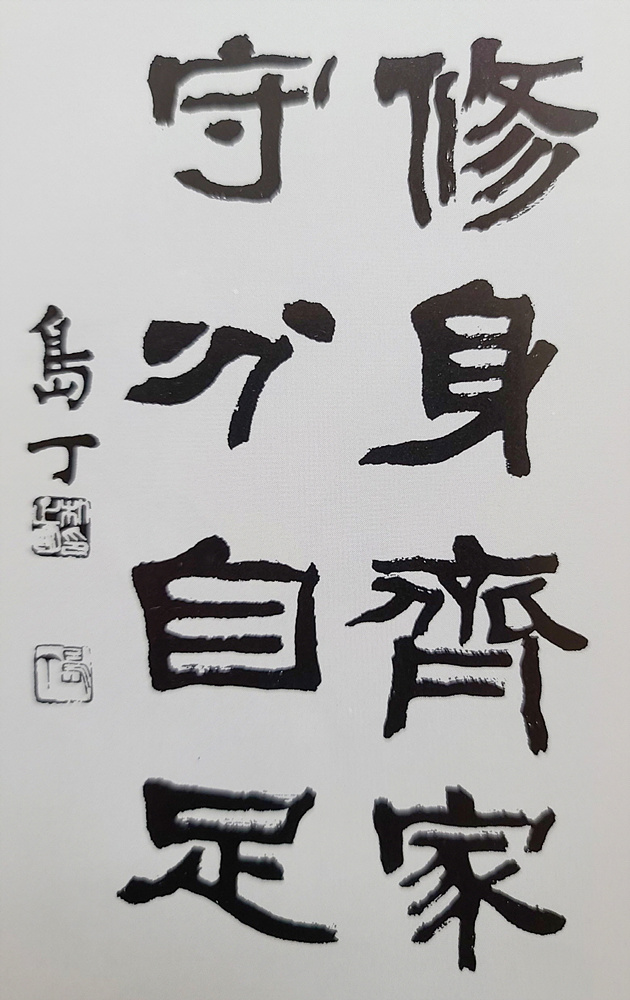 修身齊家
守分自足
島丁